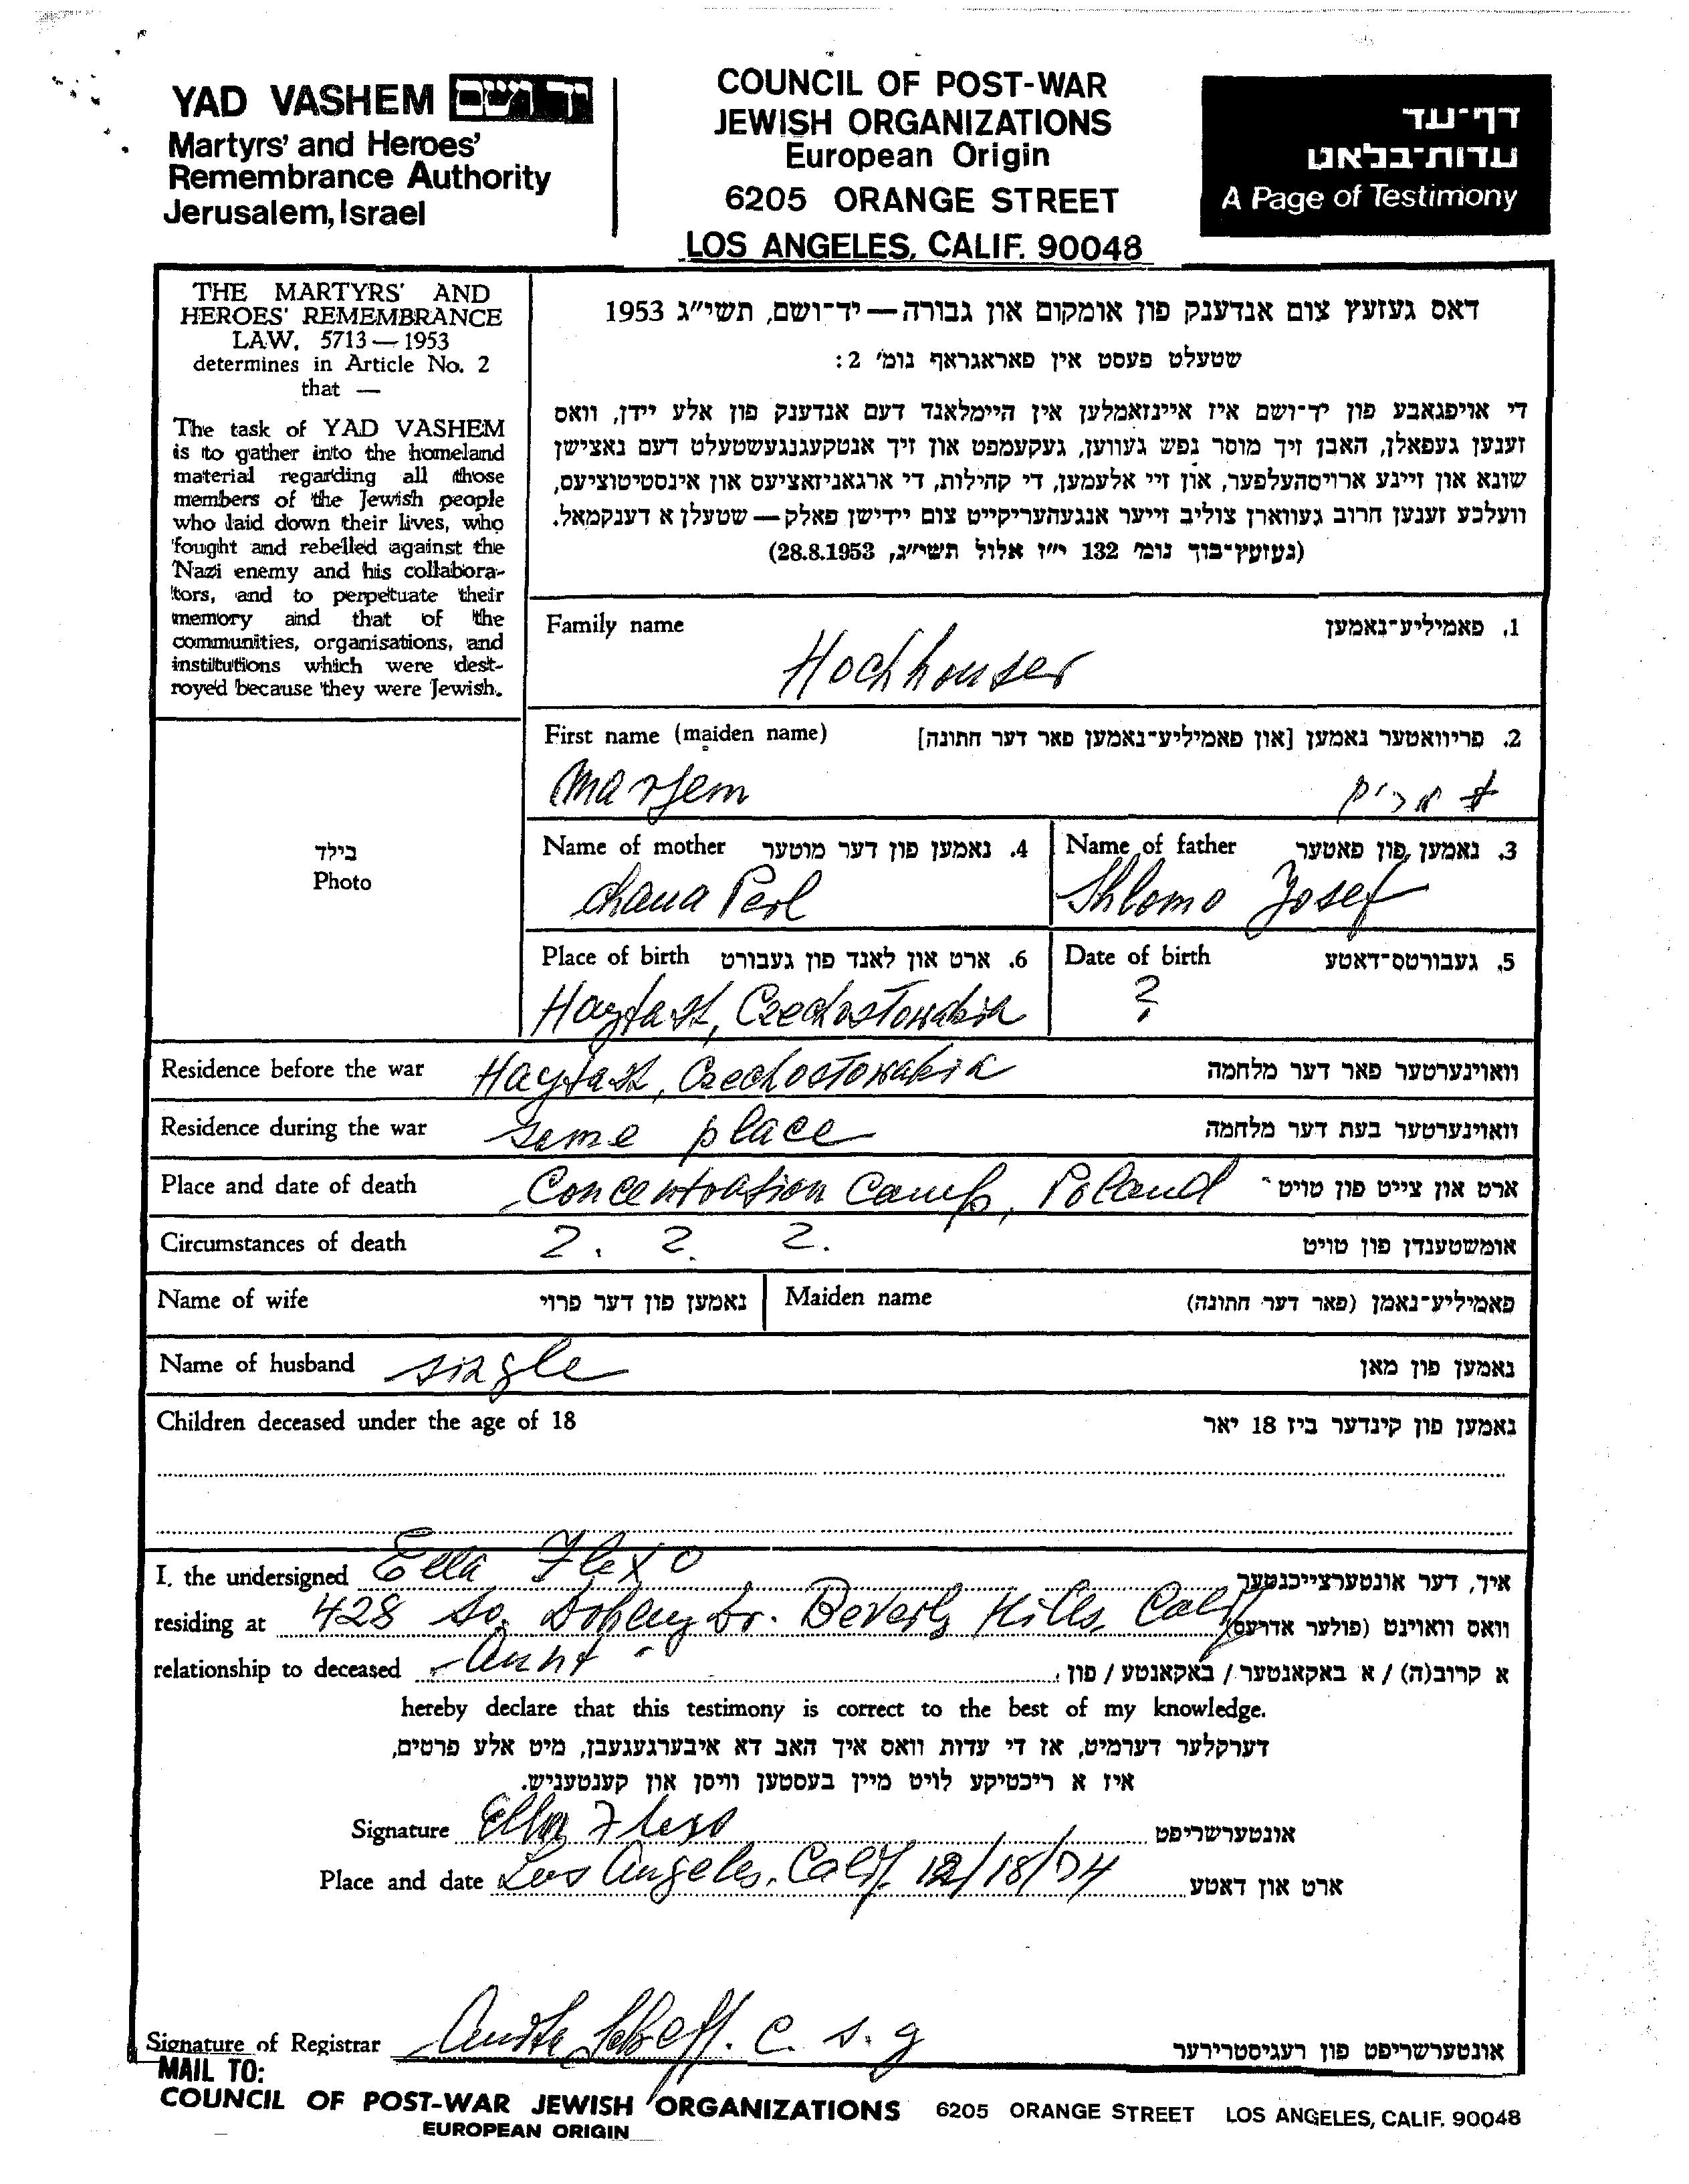 YAD VASHEM יד ושם
Martyrs' and Heroes'
Remembrance Authority
Jerusalem, Israel
COUNCIL OF POST-WAR
JEWISH ORGANIZATIONS
European Origin
6205 ORANGE STREET
LOS ANGELES, CALIF. 90048
דף־עד
עדות־בלאט
A Page of Testimony
THE MARTYRS' AND
HEROES' REMEMBRANCE
LAW, 5713—1953
determines in Article No. 2
that —
The task of YAD VASHEM
is to gather into the homeland
material regarding all those
members of the Jewish people
who laid down their lives, who
fought and rebelled against the
Nazi enemy and his collabora-
tors, and to perpetuate their
memory and that of the
communities, organisations, and
institutions which were dest-
royed because they were Jewish.
דאס געזעץ צום אנדענק פון אומקום און גבורה — יד־ושם, תשי"ג 1953
שטעלט פעסט אין פאראגראף נומ' 2:
די אויפגאבע פון יד־ושם איז איינזאמלען אין היימלאנד דעם אנדענק פון אלע יידן, וואס
זענען געפאלן, האבן זיך מוסר נפש געווען, געקעמפט און זיך אנטקעגנגעשטעלט דעם נאצישן
שונא און זיינע ארויסהעלפער, און זיי אלעמען, די קהילות, די ארגאניזאציעס און אינסטיטוציעס,
וועלכע זענען חרוב געווארן צוליב זייער אנגעהעריקייט צום יידישן פאלק — שטעלן א דענקמאל.
(געזעץ־בוך נומ' 132 י"ז אלול תשי"ג, 28.8.1953)
Family name 1. פאמיליע־נאמען
Hochhouser
First name (maiden name) 2. פריוואטער נאמען [און פאמיליע־נאמען פאר דער חתונה]
Marjem מרים
Name of mother 4. נאמען פון דער מוטער Name of father 3. נאמען פון פאטער
Chana Perl Shlomo Josef
Place of birth 6. ארט און לאנד פון געבורט Date of birth 5. געבורטס־דאטע
Czechostowakia ?
בילד
Photo
Residence before the war Czechostowakia וואוינערטער פאר דער מלחמה
Residence during the war seme place וואוינערטער בעת דער מלחמה
Place and date of death Concentration Camp, Poland ארט און צייט פון טויט
Circumstances of death ?. ?. ?. אומשטענדן פון טויט
Name of wife נאמען פון דער פרוי Maiden name פאמיליע־נאמן (פאר דער חתונה)
Name of husband single נאמען פון מאן
Children deceased under the age of 18 נאמען פון קינדער ביז 18 יאר
I, the undersigned Ella Flexo איך, דער אונטערצייכנטער
residing at 428 So. Doheny Dr. Beverly Hills, Calif וואס וואוינט (פולער אדרעס)
relationship to deceased Aunt א קרוב(ה) / א באקאנטער / באקאנטע / פון
hereby declare that this testimony is correct to the best of my knowledge.
דערקלער דערמיט, אז די עדות וואס איך האב דא איבערגעגעבן, מיט אלע פרטים,
איז א ריכטיקע לויט מיין בעסטען וויסן און קענטעניש.
Signature Ella Flexo אונטערשריפט
Place and date Los Angeles, Calif. 12/18/74 ארט און דאטע
Signature of Registrar אונטערשריפט פון רעגיסטרירער
MAIL TO:
COUNCIL OF POST-WAR JEWISH ORGANIZATIONS 6205 ORANGE STREET LOS ANGELES, CALIF. 90048
EUROPEAN ORIGIN